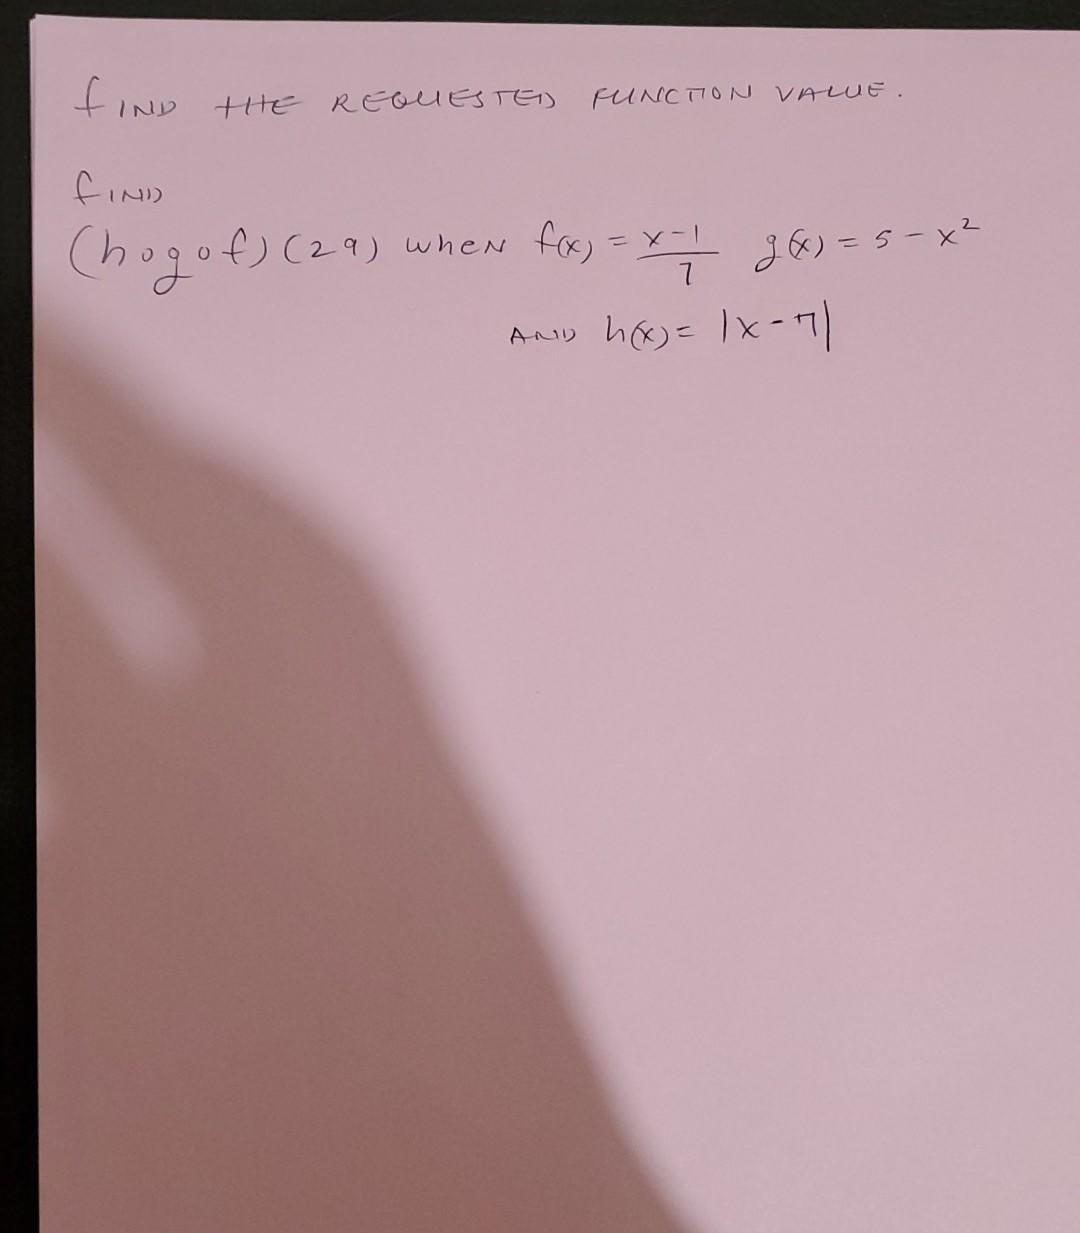 FIND THE REQUESTED FUNCTION VALUE.
FIND
(h∘g∘f)(29) when f(x) = x-1/7 g(x) = 5 - x²
AND h(x) = |x-7|